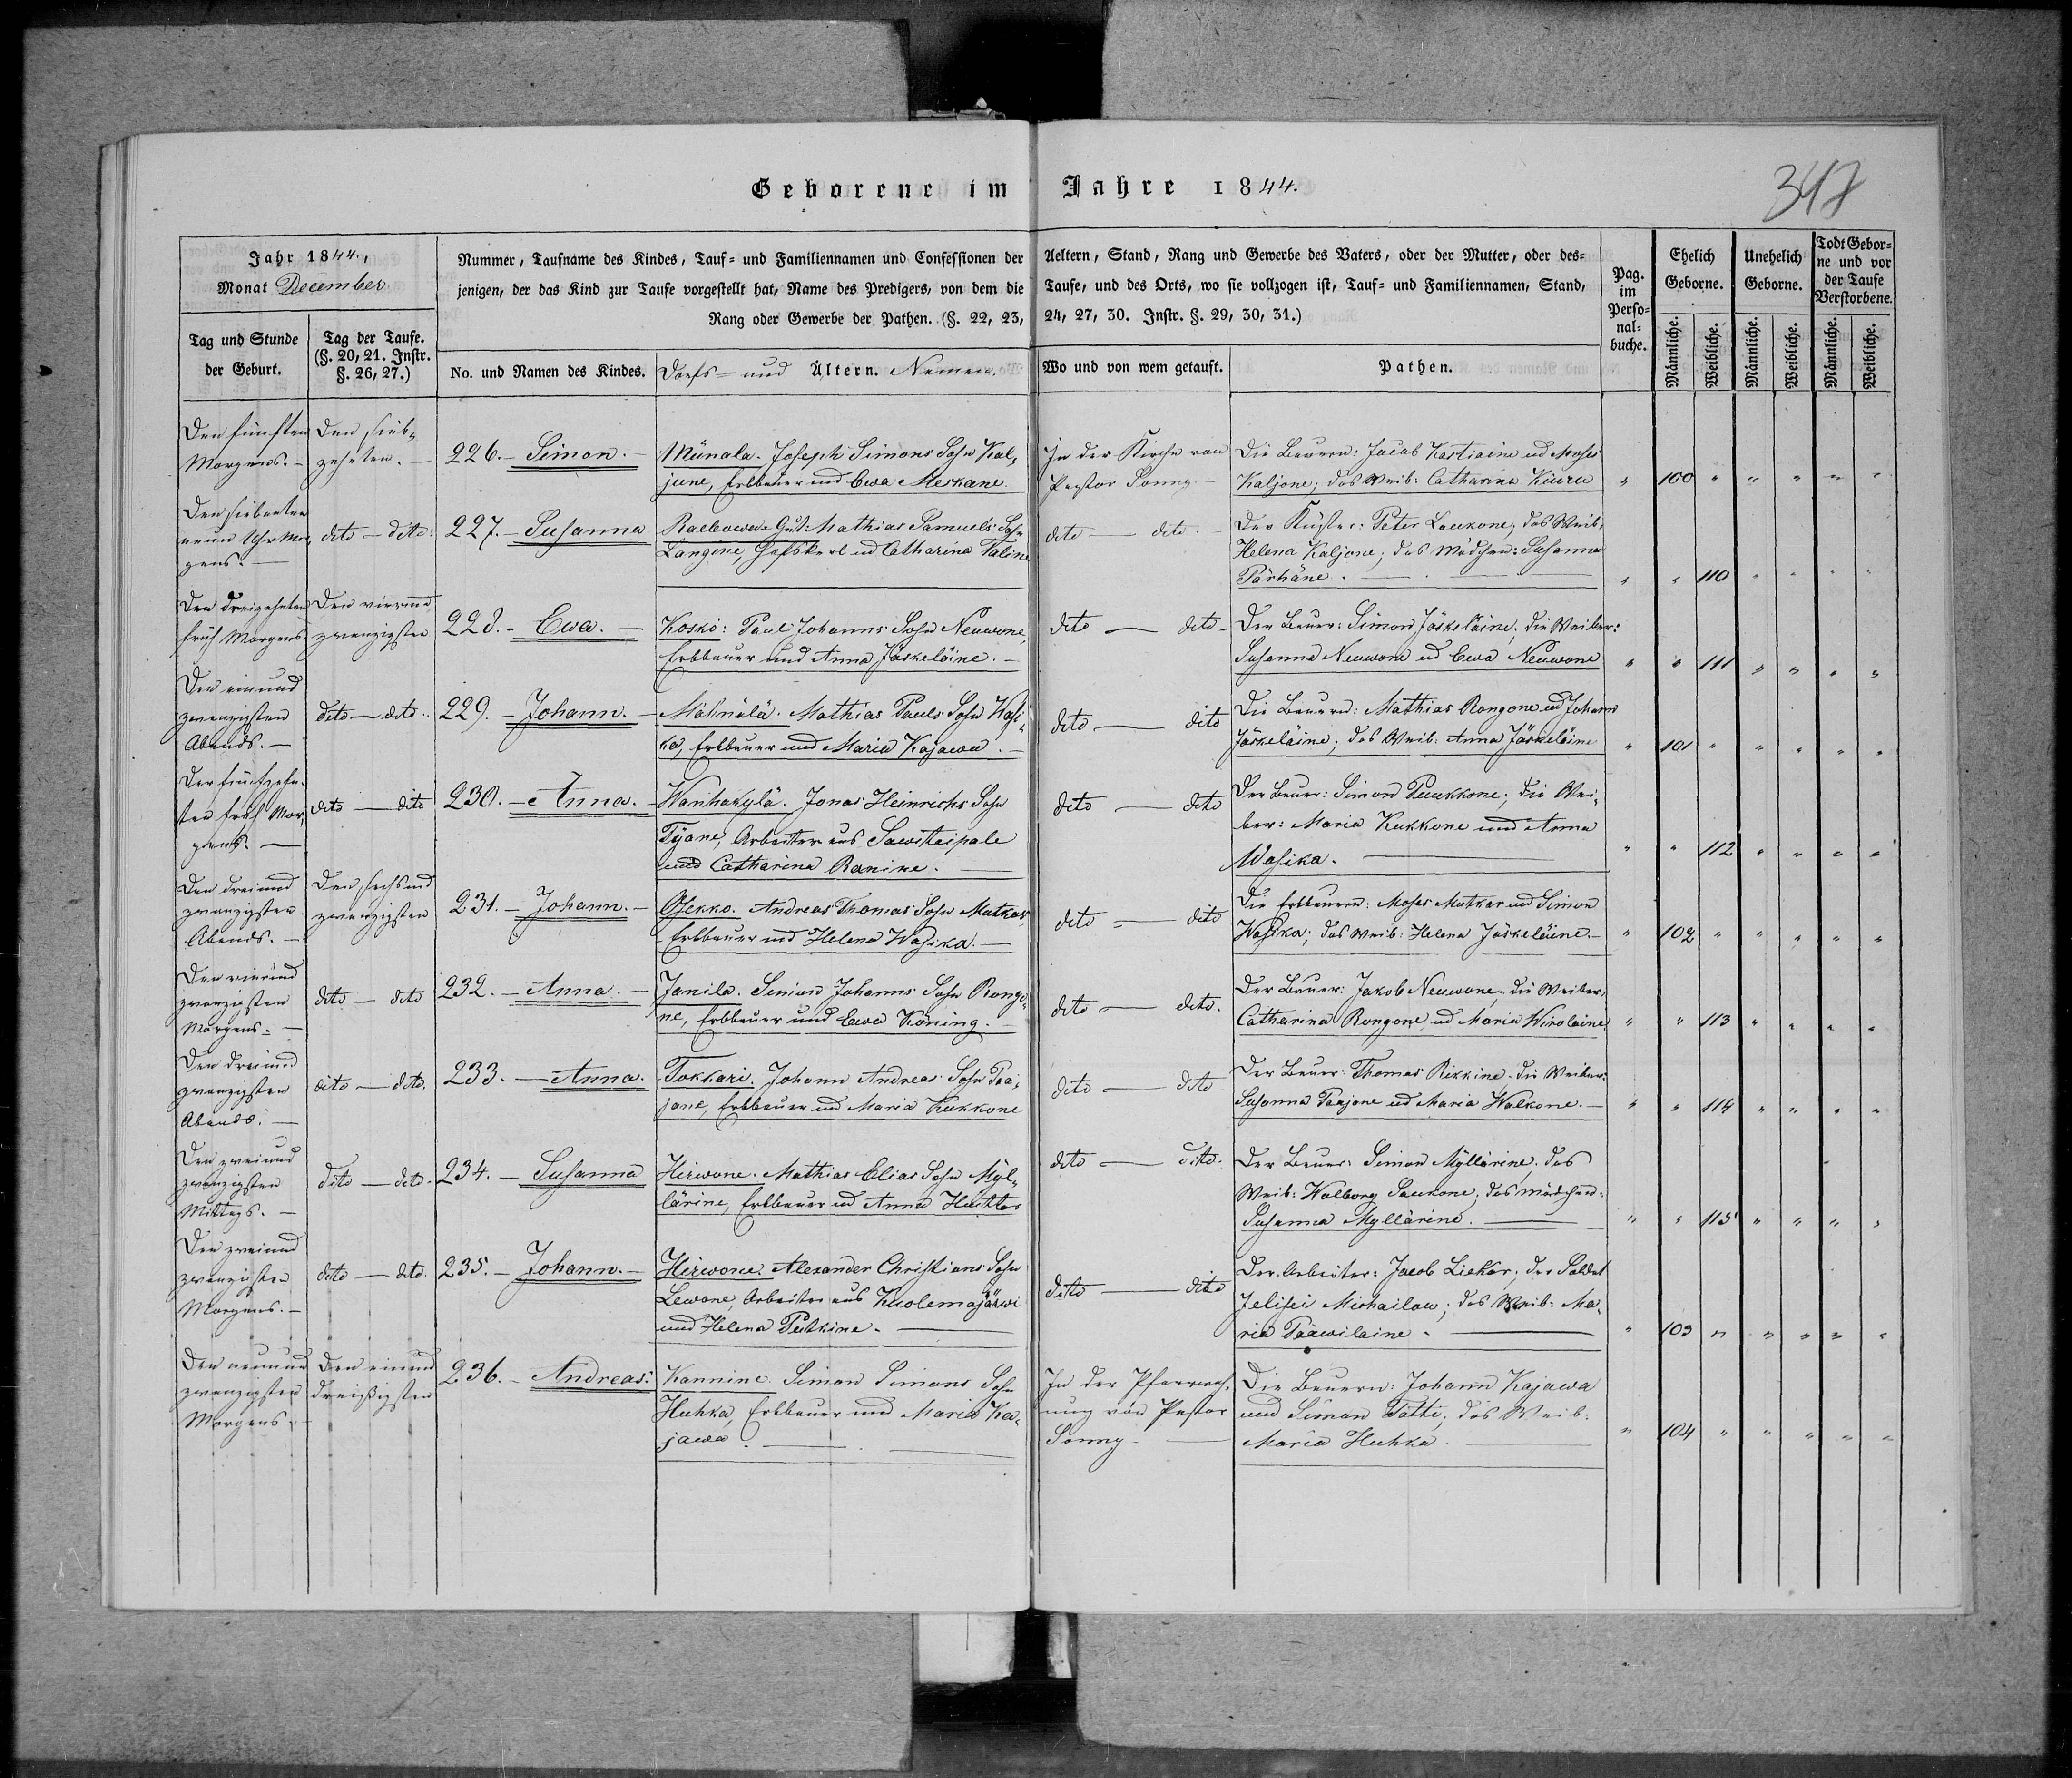 Geborene im Jahre 1844.
347
Jahr 1844.,
Monat December
Nummer, Taufname des Kindes, Tauf- und Familiennamen und Confessionen der Aeltern, Stand, Rang und Gewerbe des Vaters, oder der Mutter, oder des-
jenigen, der das Kind zur Taufe vorgestellt hat, Name des Predigers, von dem die Taufe, und des Orts, wo sie vollzogen ist, Tauf- und Familiennamen, Stand,
Rang oder Gewerbe der Pathen. (§. 22, 23, 24, 27, 30. Instr. §. 29, 30, 31.)
Pag.
im
Perso-
nal-
buche.
Ehelich
Geborne.
Unehelich
Geborne.
Todt Gebor-
ne und vor
der Taufe
Verstorbene.
Tag und Stunde
der Geburt.
Tag der Taufe.
(§. 20, 21. Instr.
§. 26, 27.)
No. und Namen des Kindes.
Dorfs- und Ältern. Namen.
Wo und von wem getauft.
Pathen.
Männliche.
Weibliche.
Männliche.
Weibliche.
Männliche.
Weibliche.
Den fünften
Morgens. -
Den sieb-
zehnten. -
226. - Simon. -
Münala. Joseph Simons Sohn Kal-
june, Erbbauer und Ewa Meskane.
In der Kirche von
Pastor Sonny -
Die Bauern: Jacob Kastiaine ud Moses
Kaljone; das Weib: Catharina Kiuru
" 100 " " " " "
Den siebenten
neun Uhr Mor-
gens. -
dito - dito:
227. - Susanna
Raebowa-Gut: Mathias Samuels Sohn
Langine, Hofskerl ud Catharina Taline
dito - dito. -
Der Küster: Peter Laukone; das Weib:
Helena Kaljone; das Mädchen: Susanna
Pärhäne. -
" " 110 " " " "
Den dreizehnten
früh Morgens
Den vierund
zwanzigsten
228. - Ewa. -
Koskö: Paul Johanns Sohn Neuwone,
Erbbauer und Anna Jäskeläine. -
dito - dito -
Der Bauer: Simon Jäskeläine; die Weiber:
Susanna Neuwone ud Ewa Neuwone
" " 111 " " " "
Den einund
zwanzigsten
Abends. -
dito - dito.
229. - Johann. -
Mälinälä. Mathias Pauls Sohn Wasi-
ka, Erbbauer und Maria Kajawa. -
dito - dito
Die Bauern: Mathias Rongone ud Johann
Jäskeläine; das Weib: Anna Jäskeläine
" 101 " " " " "
Den fünfzehn-
ten früh Mor-
gens. -
dito - dito
230. - Anna. -
Wanhakylä. Jonas Heinrichs Sohn
Tyäne, Arbeiter aus Sawitaipale
und Catharina Ranine. -
dito - dito
Der Bauer: Simon Paukkone; die Wei-
ber: Maria Kukkone und Anna
Wasika. -
" " 112 " " " "
Den dreiund
zwanzigsten
Abends. -
Den sechsund
zwanzigsten
231. - Johann. -
Osekko. Andreas Thomas Sohn Matkar,
Erbbauer und Helena Wasika. -
dito - dito
Die Erbbauern: Moses Matkar und Simon
Wasika; das Weib: Helena Jäskeläine. -
" 102 " " " " "
Den vierund
zwanzigsten
Morgens. -
dito - dito
232. - Anna. -
Janila. Simon Johanns Sohn Rongo-
ne, Erbbauer und Ewa Köning. -
dito - dito.
Der Bauer: Jakob Neuwone, die Weiber:
Catharina Rongone ud Maria Wirolaine
" " 113 " " " "
Den dreiund
zwanzigsten
Abends. -
dito - dito.
233. - Anna.
Tokkari. Johann Andreas Sohn Paa-
jane, Erbbauer und Maria Kukkone
dito - dito
Der Bauer: Thomas Rikkine, die Weiber:
Susanna Paajone ud Maria Walkone. -
" " 114 " " " "
Den zweiund
zwanzigsten
Mittags. -
dito - dito.
234. - Susanna
Hirwone. Mathias Elias Sohn Myl-
lärine, Erbbauer ud Anna Huttor
dito - dito.
Der Bauer: Simon Myllärine, das
Weib: Walborg Saukone; das Mädchen:
Susanna Myllärine. -
" " 115 " " " "
Den zweiund
zwanzigsten
Morgens. -
dito - dito.
235. - Johann. -
Hirwone. Alexander Christians Sohn
Lewone, Arbeiter aus Kuolemajärwi
und Helena Putkine. -
dito - dito
Der Arbeiter: Jacob Liekar, der Soldat
Jelisei Michailow; das Weib: Ma-
ria Pääwilaine. -
" 103 " " " " "
Den neunund
zwanzigsten
Morgens. -
Den einund
dreißigsten
236. - Andreas:
Kannine. Simon Simons Sohn
Huhka, Erbbauer und Maria Ka-
jawa. -
In der Pfarrwoh-
nung von Pastor
Sonny -
Die Bauern: Johann Kajawa
und Simon Tatti; das Weib:
Maria Huhka. -
" 104 " " " " "